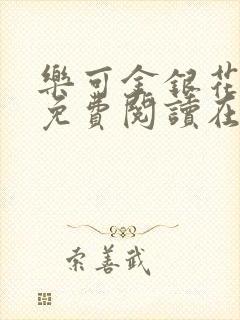 樂可金銀花
免費閱讀在
索善武